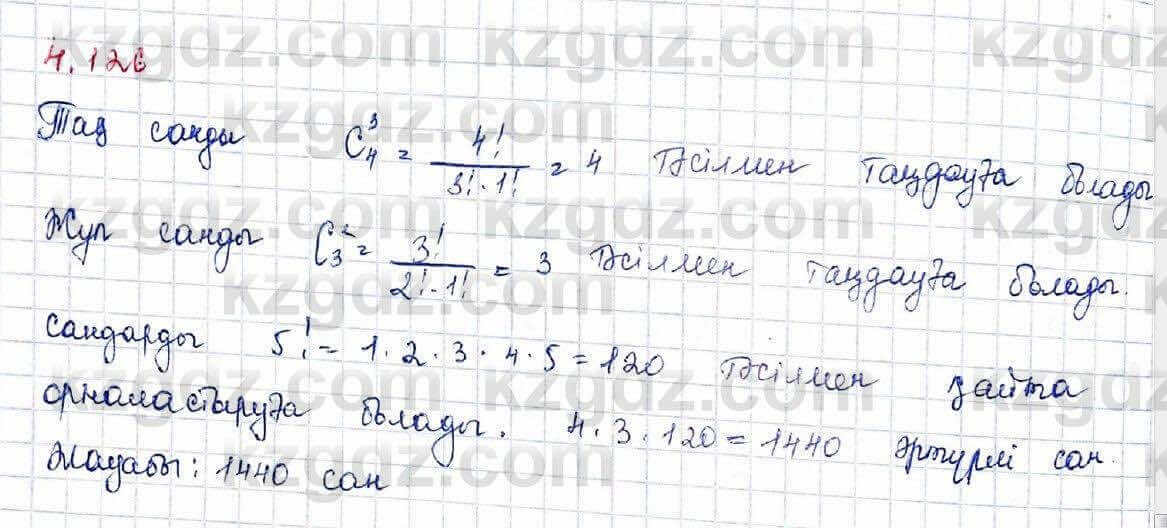 4.126
Тақ санды C₄³ = 4!/3!·1! = 4 тәсілмен таңдауға болады
Жұп санды C₃² = 3!/2!·1! = 3 тәсілмен таңдауға болады.
сандарды 5! = 1·2·3·4·5 = 120 тәсілмен қайта
орналастыруға болады. 4·3·120 = 1440 әртүрлі сан.
Жауабы: 1440 сан
kzgdz.com